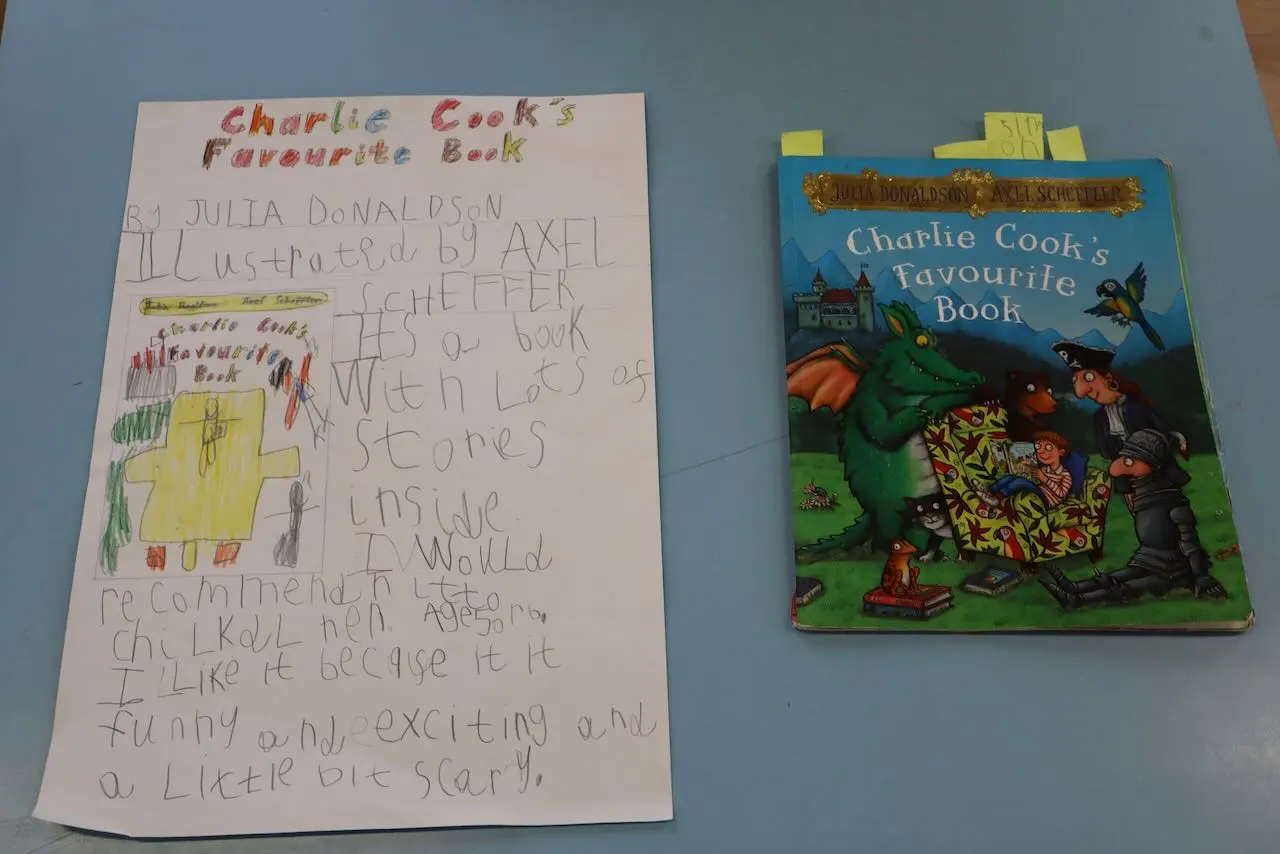 Charlie Cook's
Favourite Book
By JULIA DONALDSON
ILLustrated by AXEL
SCHEFFER
Its a book
With Lots of
stories
inside
I WoULd
recommend it to
I Like it because it it
funny and exciting and
a Little bit scary.
Axel Scheffler
Charlie Cook's
Favourite
Book
JULIA DONALDSON AXEL SCHEFFLER
Charlie Cook's
Favourite
Book